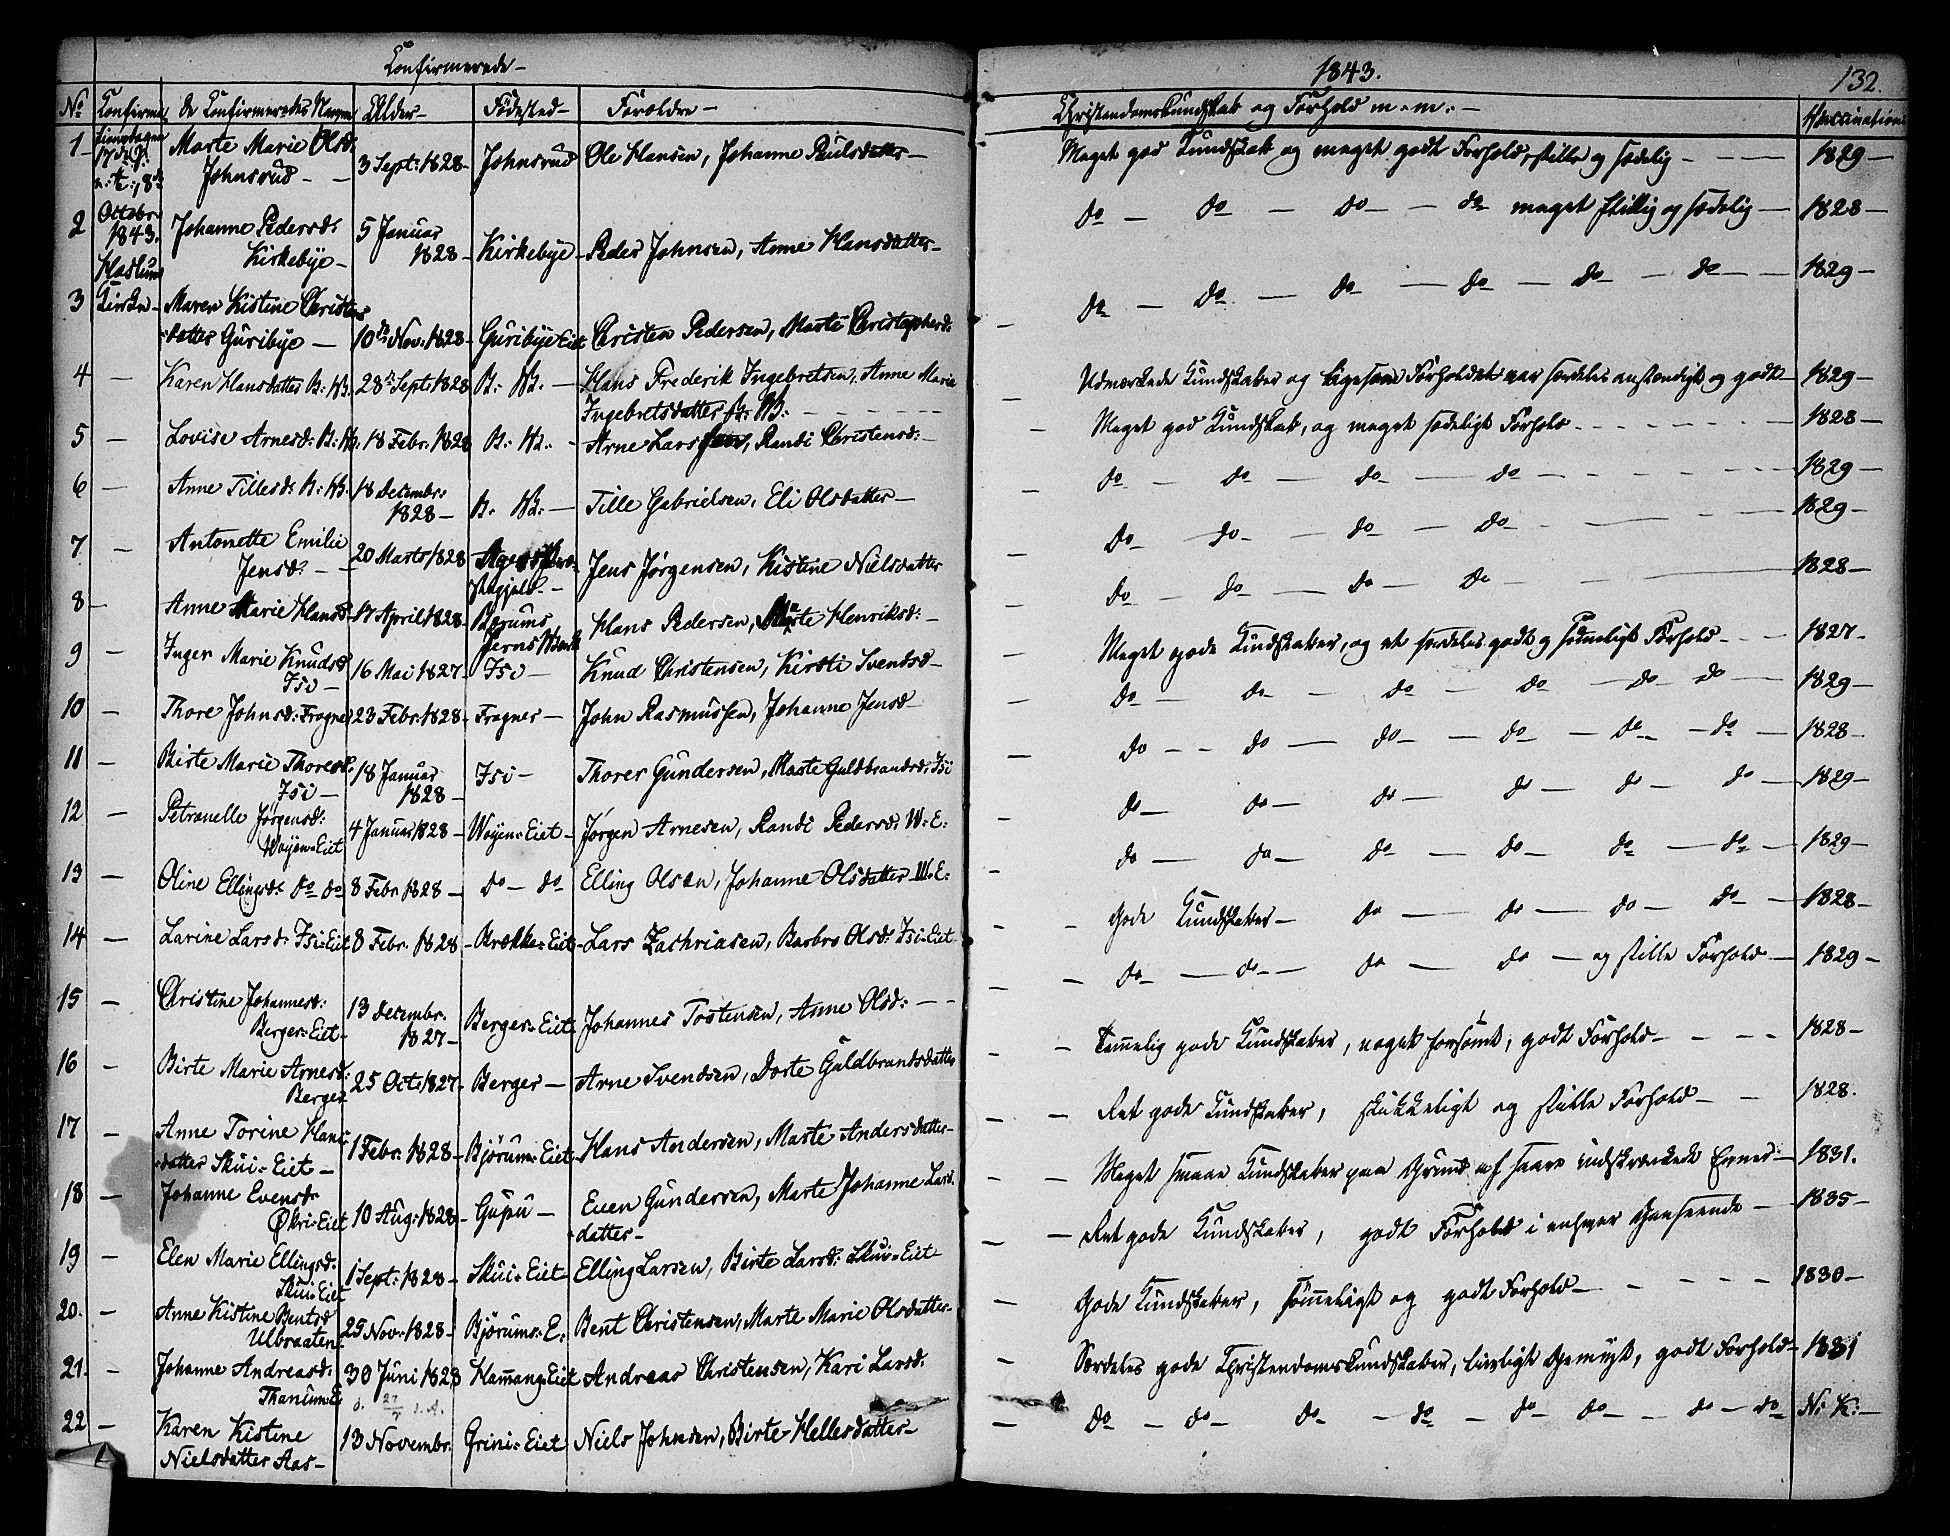 Confirmerede - 1843. 132.
No Confirma de Confirmeredes Navne Alder - Fødested - Forældre - Christendomskundskab og Forhold m. m. - Vaccination
1 - 17 d. 8de Octobr. 1843. Haslum Kirke -
Marte Marie Olsd. 3 Sept: 1828 - Johnsrud Ole Hansen, Johanne Paulsdatter - Meget god Kundskab og meget godt Forhold, stille og sædelig - - - 1829 -
Johnsrud - -
2 Johanne Pedersd: 5 Januar Kirkebye - Peder Johnsen, Anne Hansdatter - do - do - do - do meget flittig og sædelig - 1828 -
Kirkebye - 1828 -
3 Maren Kistine Christens 10de Nov. 1828 - Guribye Eiet Christen Pedersen, Marte Christophersd: do - do - do - do - do - do - - 1829 -
datter Guribye -
4 - Karen Hansdatter B: W. 28de Sept. 1828 B: W. - Hans Frederik Ingebretsen, Anne Marie Udmærkede Kundskaber og ligesaa Forholdet var særdeles anstændigt og godt - 1829 -
Ingebretsdatter B: W: - - - - -
5 - Lovise Arnesd: B: W. 18 Febr. 1828 B: W. - Arne Larssen, Randi Christensd: - Meget god Kundskab, og meget sædeligt Forhold - - - - 1828 -
6 - Anne Tillesd: B: W. 18 Decembr. B: W. - Tille Gabrielsen, Eli Olsdatter - do - do - do - do - - - - 1829 -
1828 -
7 - Antonette Emilie 20 Marts 1828 Jens Jørgensen, Kistine Nielsdatter do - do - do - do - - - 1829 -
Jensd: - -
8 - Anne Marie Hansd 17 April 1828 Bærums Jerns Værk Hans Pedersen, Marte Henriksd: - do - do - do - do - - - 1828 -
9 - Inger Marie Knudsd 16 Mai 1827 - Isi - Knud Christensen, Kirsti Svendsd - Meget gode Kundskaber, og et særdeles godt og sømeligt Forhold - - - 1827 -
Isi -
10 - Thore Johnsd: Frogner 23 Febr. 1828 - Frogner - John Rasmussen, Johanne Jensd - do - do - do - do - do - do - 1829 -
11 - Birte Marie Thoresd. 18 Januar Isi - Thorer Gundersen, Marte Guldbrandsd: Isi do - - do - do - do - do - do - 1828 -
Isi - 1828 -
12 - Petronelle Jørgensd: 4 Januar 1828 - Wøyen-Eiet - Jørgen Arnesen, Randi Pedersd: W: E: do - do - do - do - do - do - 1829 -
Wøyen-Eiet
13 - Oline Ellingsd: do do 8 Febr 1828 - do - do Elling Olsen, Johanne Olsdatter W: E: do - do - do - do - do - do - 1829 -
14 - Larine Larsd: Isi-Eiet 8 Febr. 1828 - Brække-Eiet - Lars Zachriasen, Barbro Olsd: Isi-Eiet - gode Kundskaber - do - do - do - do - 1828 -
15 - Christine Johannesd: 13 Decembr. Berger-Eiet Johannes Tostensen, Anne Olsd: - - do - do - do - do - og stille Forhold - 1829 -
Berger-Eiet - 1827 -
16 - Birte Marie Arnesd: 25 Oct: 1827 - Berger - Arne Svendsen, Dorte Guldbrandsdatter Temelig gode Kundskaber, noget forsømt, godt Forhold - - - 1828 -
Berger
17 - Anne Torine Hans- 1 Febr. 1828 - Bjørum-Eiet - Hans Andersen, Marte Andersdatter - Ret gode Kundskaber, skikkeligt og stille Forhold - - 1828.
datter Skui-Eiet -
18 - Johanne Evensd: 10 Aug: 1828 - Gupu - Even Gundersen, Marte Johanne Lars Meget smaae Kundskaber paa Grund af saare indskrænkede Evner - 1831.
Økri-Eiet datter -
19 - Elen Marie Ellingsd: 1 Sept: 1828 - Skui-Eiet Elling Larsen, Birte Larsd: Skui-Eiet - Ret gode Kundskaber, godt Forhold i enhver Henseende - 1835 -
Skui Eiet
20. - Anne Kistine Bentsd 25 Nov: 1828 - Bjørums-E: Bent Christensen, Marte Marie Olsdatter - Gode Kundskaber, sømeligt og godt Forhold - - - - 1830 -
Ulbraaten
21 - Johanne Andreasd: 30 Juni 1828 Hamang-Eiet Andreas Christensen, Kari Larsd: Særdeles gode Christendomskundskaber, livligt Gemyt, godt Forhold - 1831
Thanum E d. 27/7 s. A.
22 - Karen Kistine 13 Novembr. Grini-Eiet Niels Johnsen, Birte Hellesdatter - do - do - do - do - do - do - do - do N: K: -
Nielsdatter Aas -